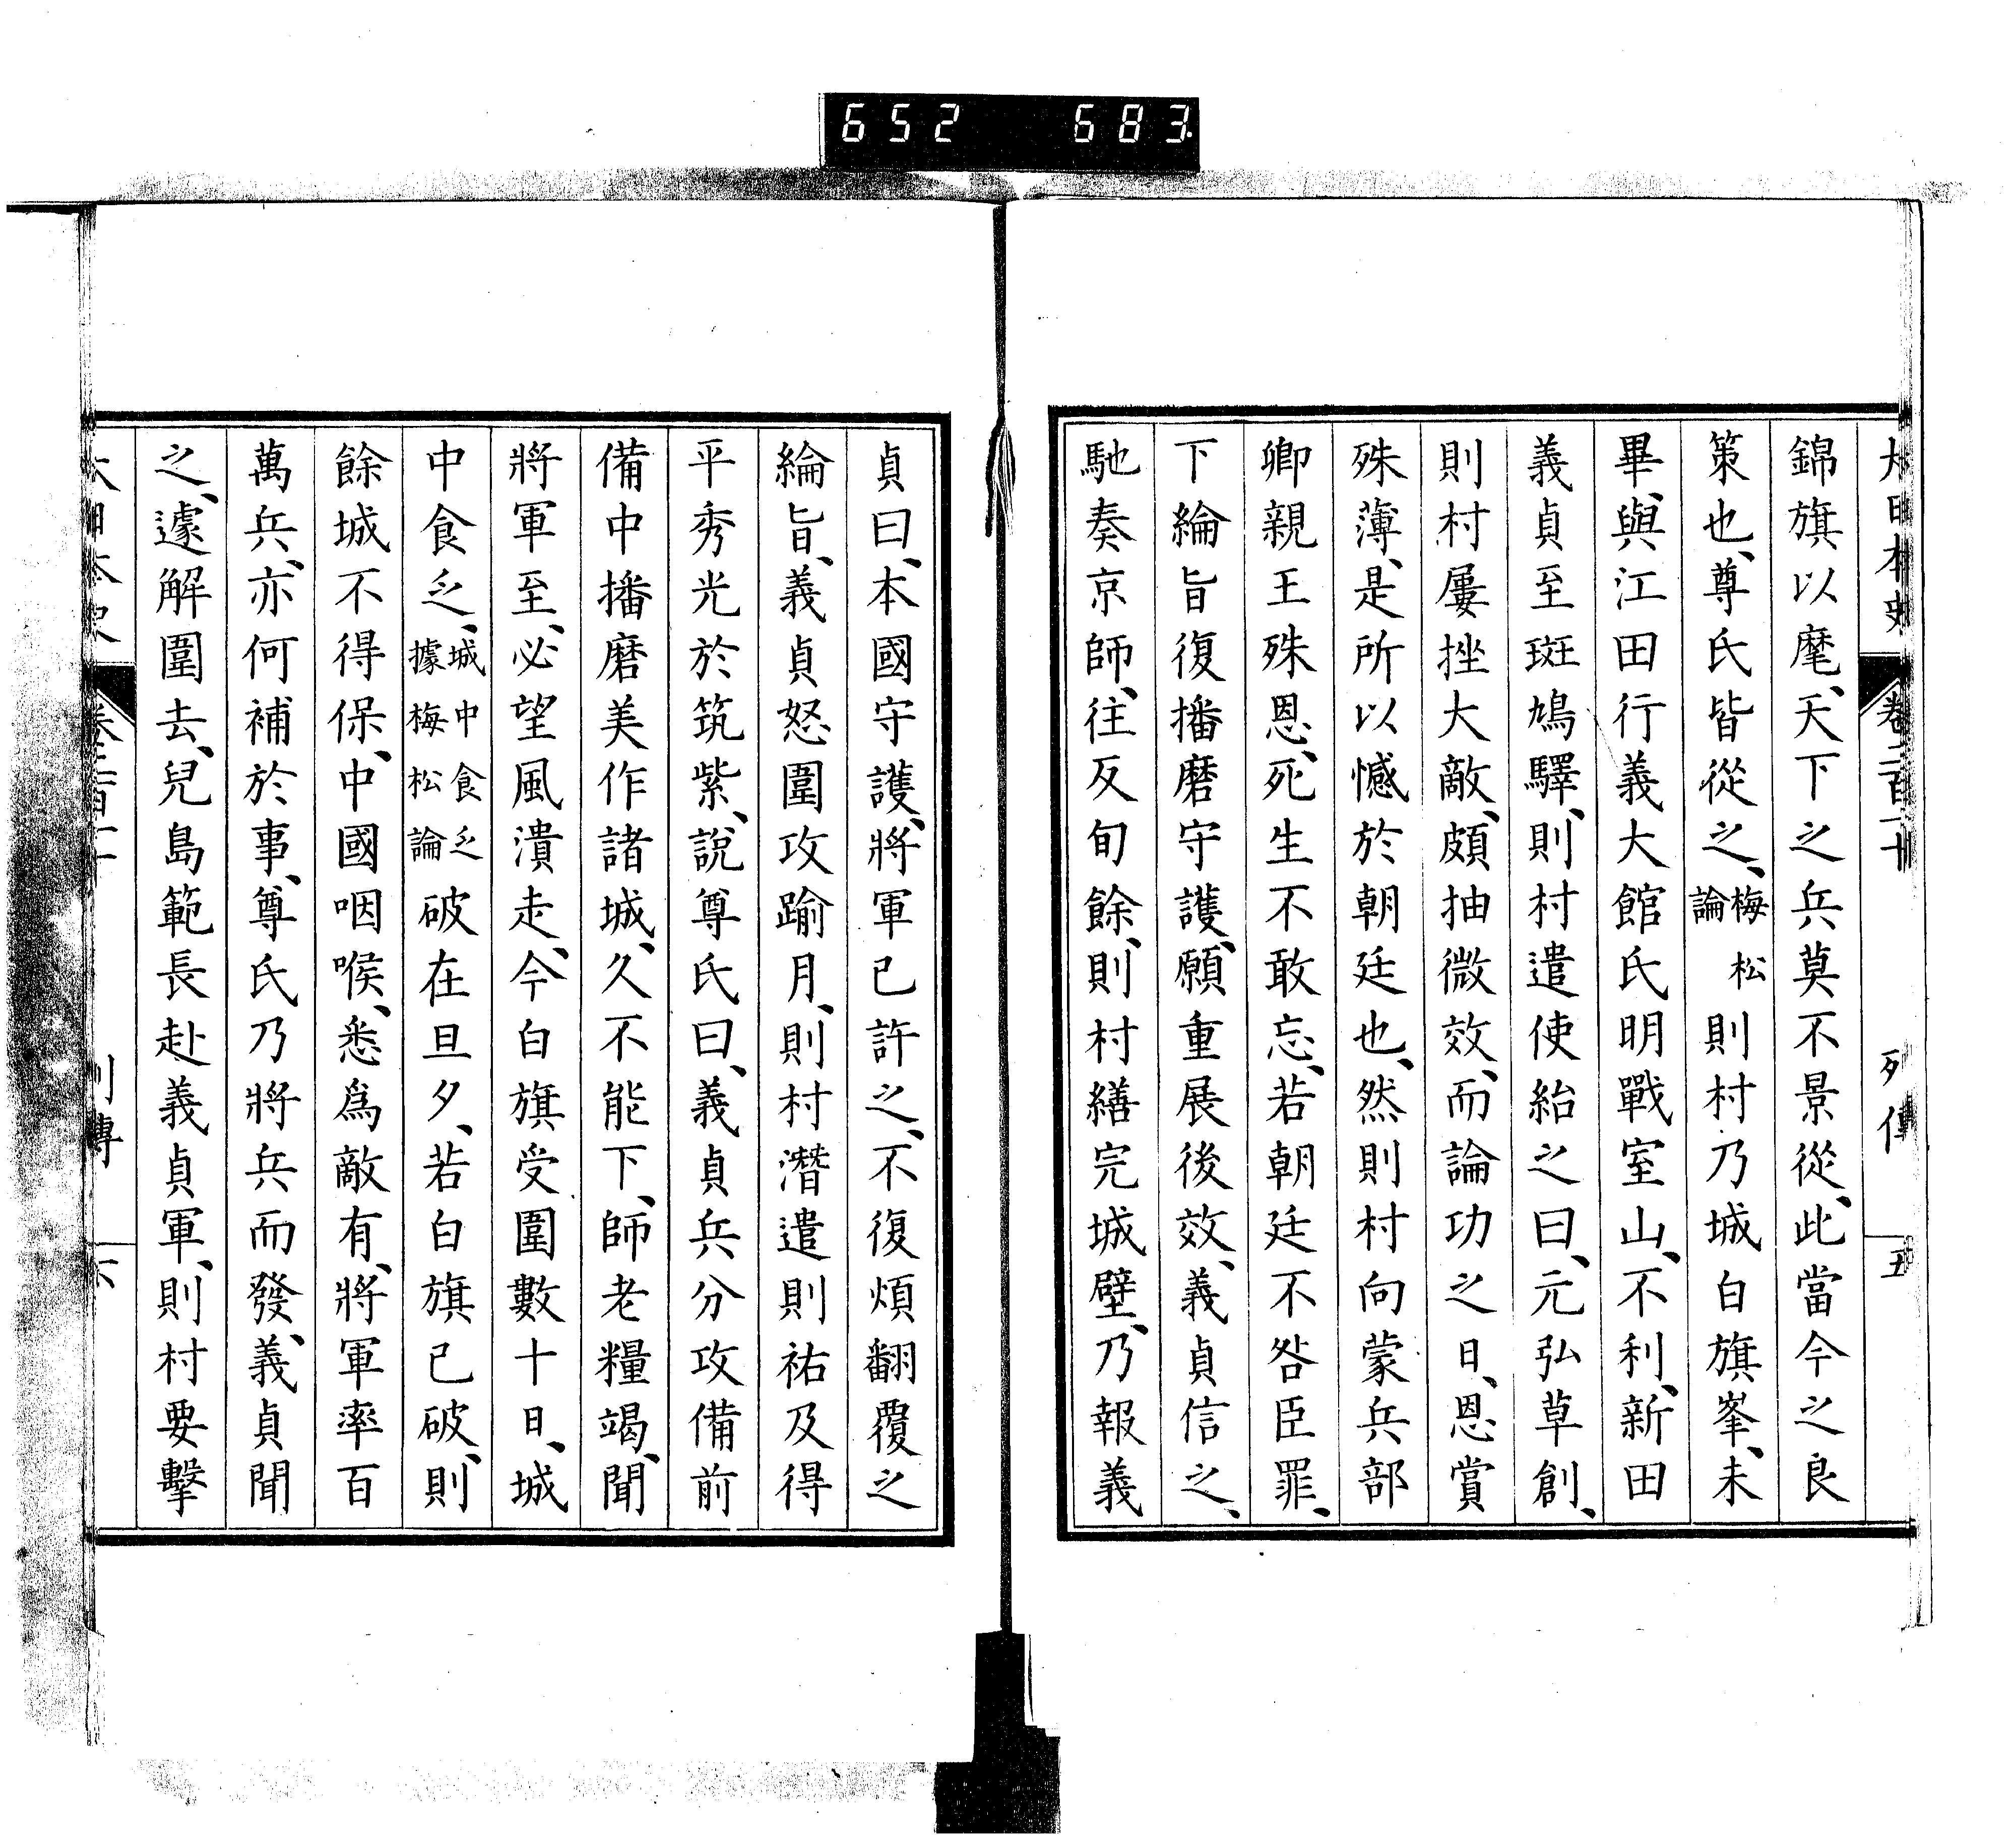 652 683
大日本史 卷二百二十 列傳 五
錦旗以麾、天下之兵莫不景從、此當今之良
策也、尊氏皆從之、梅松論則村乃城白旗峯、未
畢、與江田行義大館氏明戰室山、不利、新田
義貞至斑鳩驛、則村遣使紿之曰、元弘草創、
則村屢挫大敵、頗抽微效、而論功之日、恩賞
殊薄、是所以憾於朝廷也、然則村向蒙兵部
卿親王殊恩、死生不敢忘、若朝廷不咎臣罪、
下綸旨復播磨守護、願重展後效、義貞信之、
馳奏京師、往反旬餘、則村繕完城壁、乃報義
貞曰、本國守護、將軍已許之、不復煩翻覆之
綸旨、義貞怒圍攻踰月、則村潛遣則祐及得
平秀光於筑紫、說尊氏曰、義貞兵分攻備前
備中播磨美作諸城、久不能下、師老糧竭、聞
將軍至、必望風潰走、今白旗受圍數十日、城
中食乏、城中食乏據梅松論破在旦夕、若白旗已破、則
餘城不得保、中國咽喉、悉爲敵有、將軍率百
萬兵、亦何補於事、尊氏乃將兵而發、義貞聞
之、遽解圍去、兒島範長赴義貞軍、則村要擊
大日本史 列傳 六